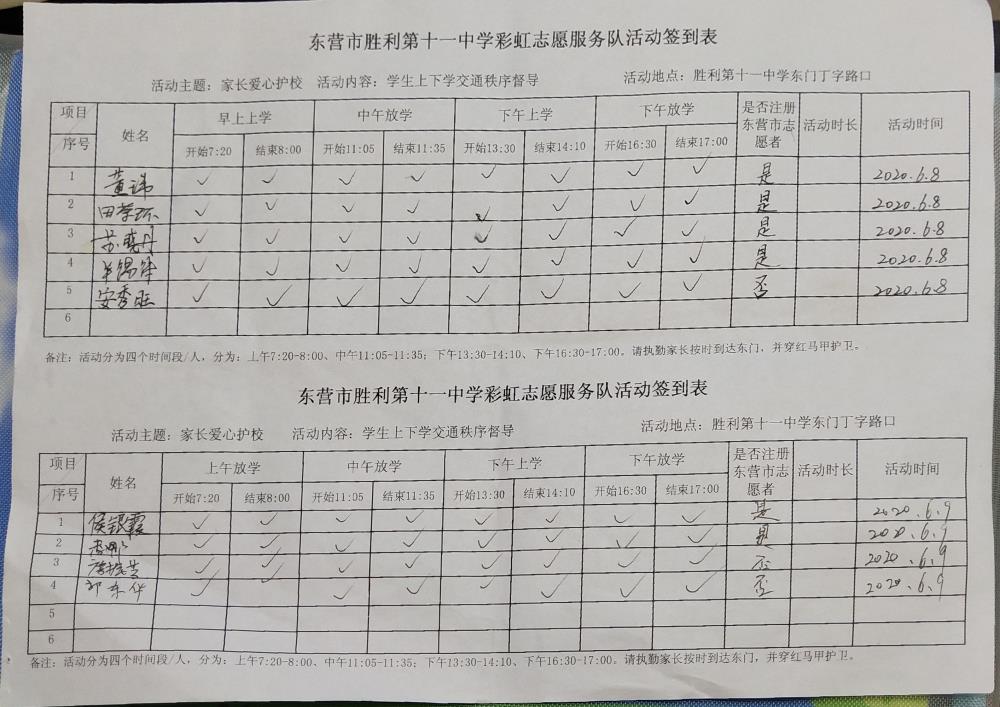 东营市胜利第十一中学彩虹志愿服务队活动签到表
活动主题：家长爱心护校 活动内容：学生上下学交通秩序督导 活动地点：胜利第十一中学东门丁字路口
项目 姓名 早上上学 中午放学 下午上学 下午放学 是否注册东营市志愿者 活动时长 活动时间
序号 开始7:20 结束8:00 开始11:05 结束11:35 开始13:30 结束14:10 开始16:30 结束17:00
1 ✓ ✓ ✓ ✓ ✓ ✓ ✓ ✓ 是 2020.6.8
2 ✓ ✓ ✓ ✓ ✓ ✓ ✓ ✓ 是 2020.6.8
3 苏晓丹 ✓ ✓ ✓ ✓ ✓ ✓ ✓ ✓ 是 2020.6.8
4 ✓ ✓ ✓ ✓ ✓ ✓ ✓ ✓ 是 2020.6.8
5 安秀旺 ✓ ✓ ✓ ✓ ✓ ✓ ✓ ✓ 否 2020.6.8
6
备注：活动分为四个时间段/人，分为：上午7:20-8:00、中午11:05-11:35；下午13:30-14:10、下午16:30-17:00。请执勤家长按时到达东门，并穿红马甲护卫。
东营市胜利第十一中学彩虹志愿服务队活动签到表
活动主题：家长爱心护校 活动内容：学生上下学交通秩序督导 活动地点：胜利第十一中学东门丁字路口
项目 姓名 上午放学 中午放学 下午上学 下午放学 是否注册东营市志愿者 活动时长 活动时间
序号 开始7:20 结束8:00 开始11:05 结束11:35 开始13:30 结束14:10 开始16:30 结束17:00
1 侯银霞 ✓ ✓ ✓ ✓ ✓ ✓ ✓ ✓ 是 2020.6.9
2 ✓ ✓ ✓ ✓ ✓ ✓ ✓ ✓ 是 2020.6.9
3 ✓ ✓ ✓ ✓ ✓ ✓ ✓ ✓ 否 2020.6.9
4 ✓ ✓ ✓ ✓ ✓ ✓ ✓ 否 2020.6.9
5
6
备注：活动分为四个时间段/人，分为：上午7:20-8:00、中午11:05-11:35；下午13:30-14:10、下午16:30-17:00。请执勤家长按时到达东门，并穿红马甲护卫。